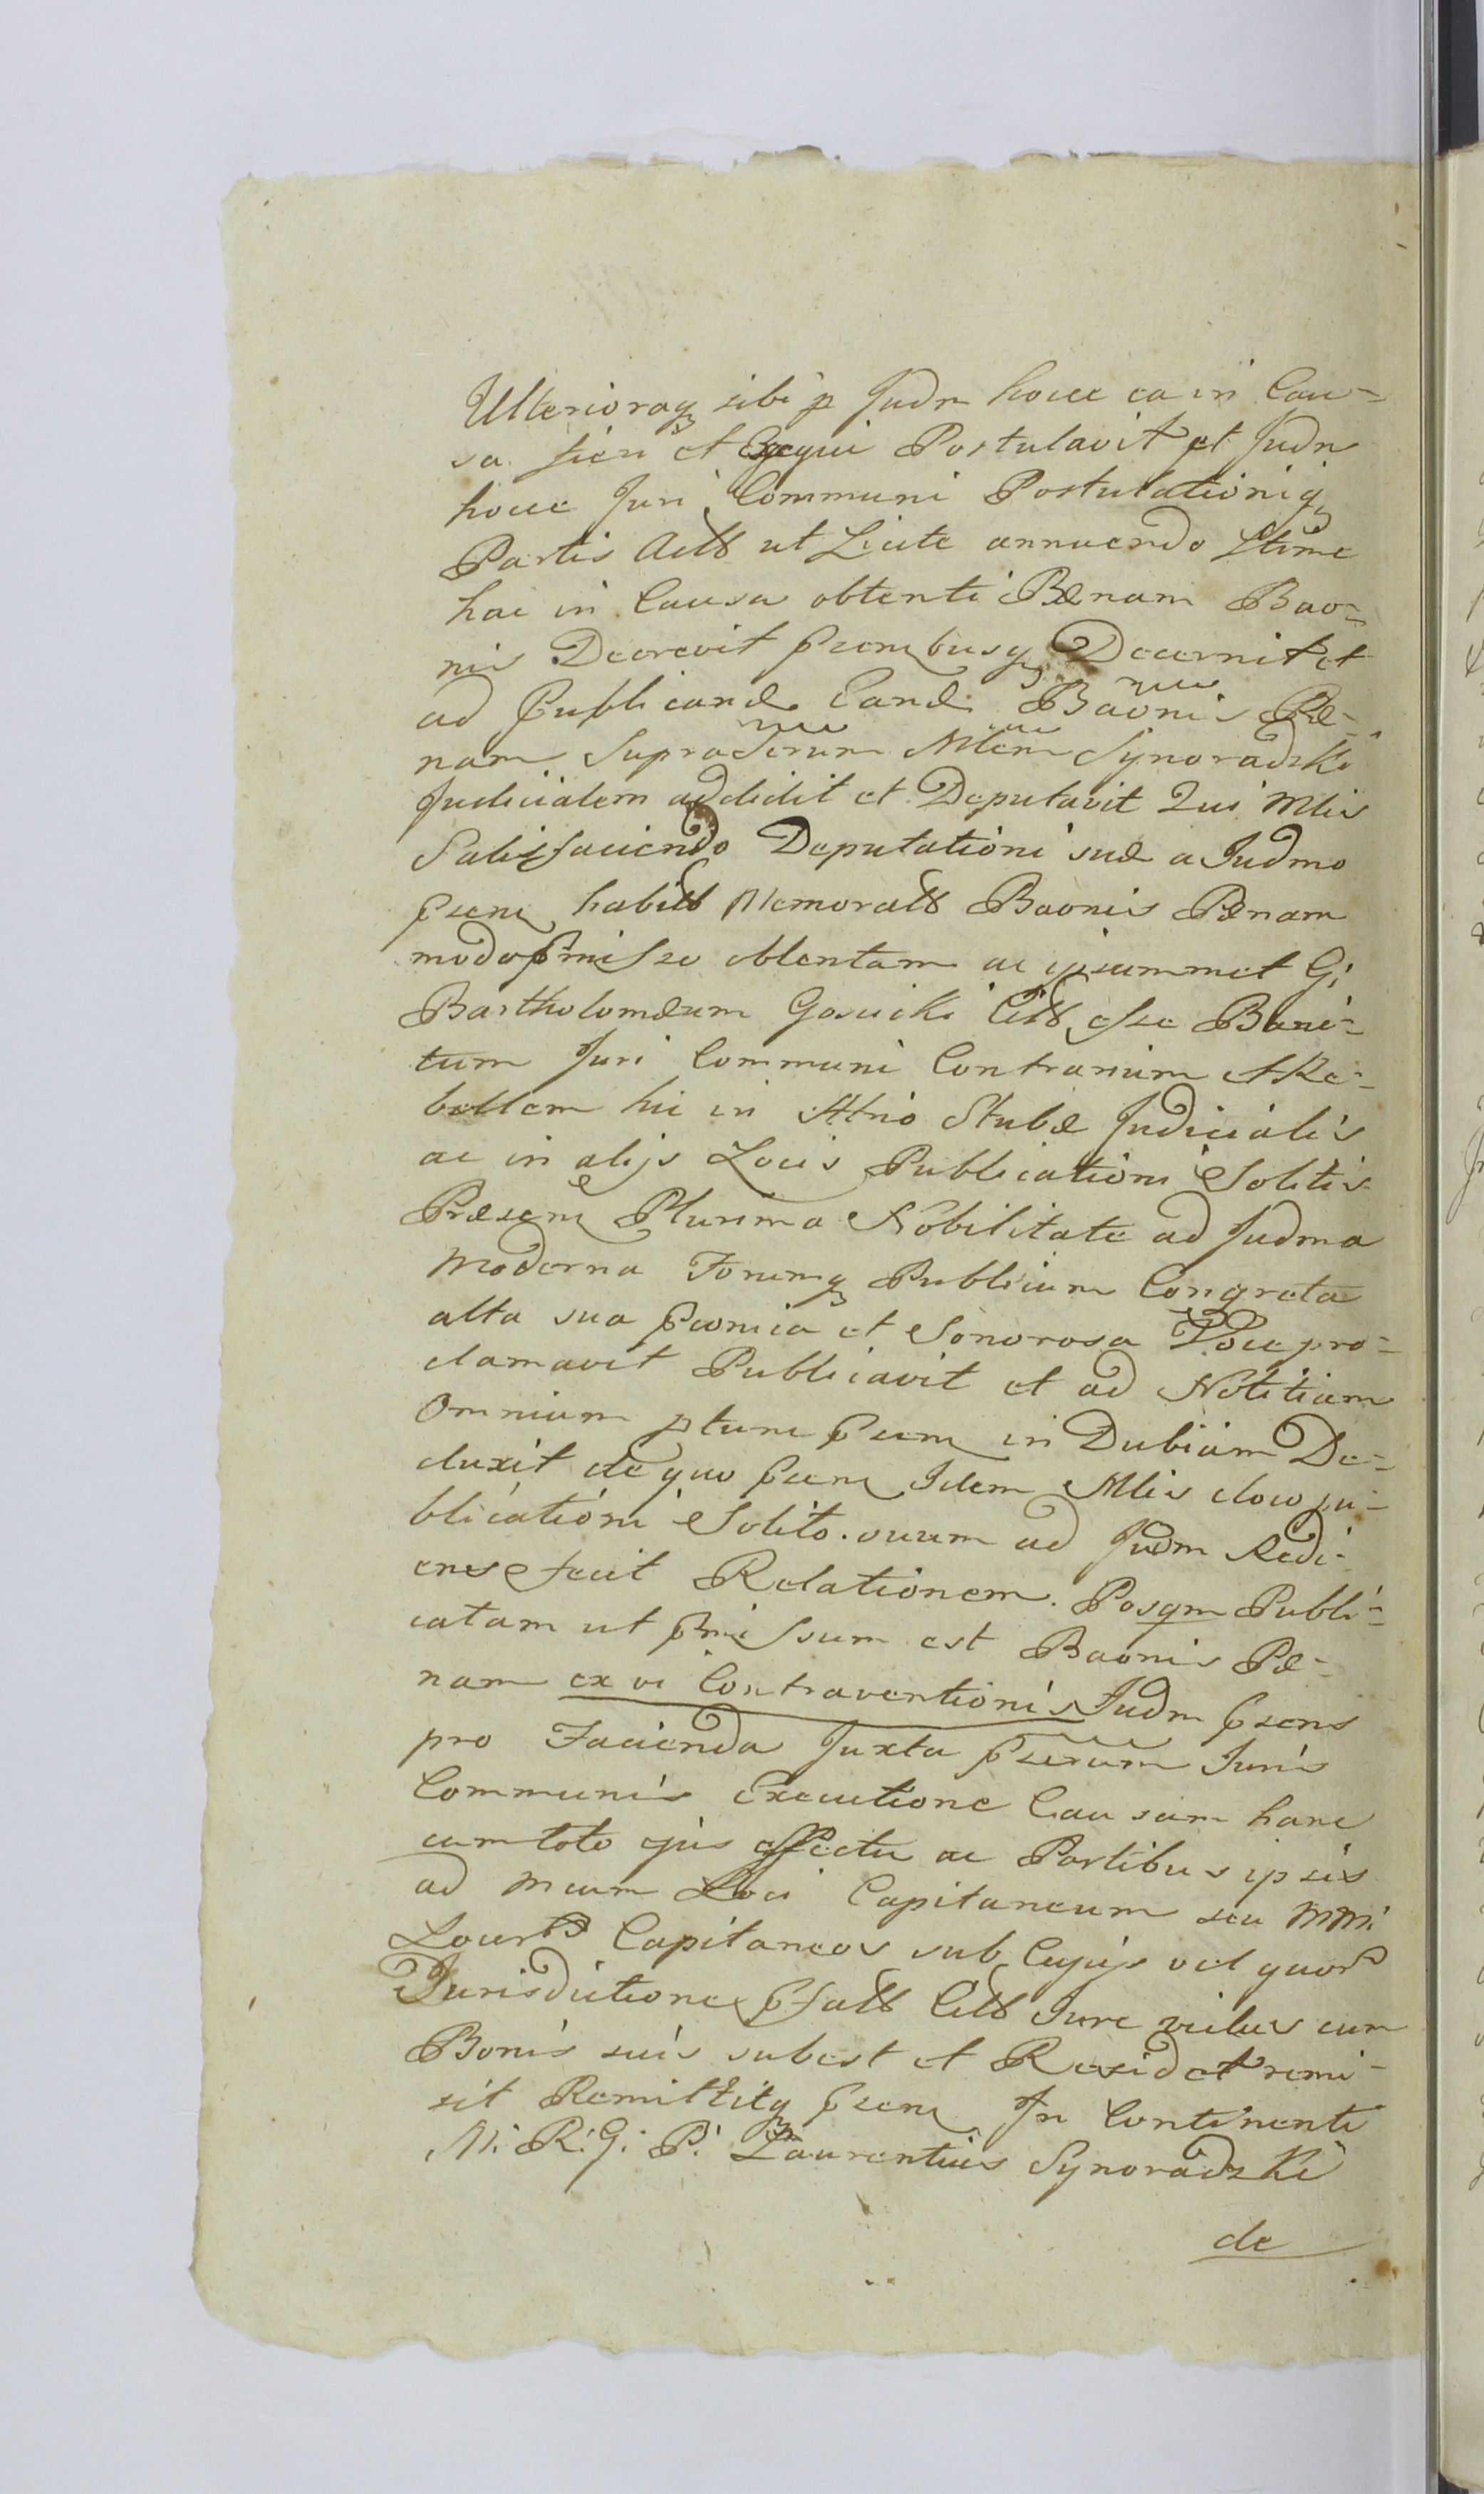 Ulterioraq3 sibi p Judm hocce ea in Cau-
sa fieri et Exequi Postulavit et Judm
hocce Juri Communi Postulationiq3
Partis Act ut Licite annuendo
hac in Causa obtenti Pænam Bao-
nis Decrevit Decernit et
ad Publicand Eand Baonis Pæ-
nam Mlem Synoradzki
Judicialem addidit et Deputavit Qui Mlis
Satisfaciendo Deputationi suæ a Judmo
psen habit Memorat Baonis Pænam
modo pmisso obtentam ac ipsummet G:
Bartholomæum Gosicki Cit esse Bani-
tum Juri Communi Contrarium et Re-
bellem hic in Atrio Stubæ Judicialis
ac in alijs Locis Publicationi Solitis
Præsen Plurima Nobilitate ad Judma
Moderna Forumq3 Publicum Congreta
alta sua et Sonorosa Voce pro-
clamavit Publicavit et ad Notitiam
Omnium psen in Dubiam De-
duxit de quo psen Idem Mlis loco pu-
blicationi Solito suam ad Judm Redi-
ens fecit Relationem. Posqm Publi-
catam ut pmissum est Baonis Pæ-
nam ex vi Contraventionis Judm psens
pro Facienda Juxta Juris
Communis Executione Causam hanc
cum toto ejus effectu ac Partibus ipsis
ad Mcum Loci Capitaneum seu MMi
Locor Capitaneos sub Cujus vel quor
Jurisdictione pfat Cit Jure cum
Bonis suis subest et Residet remi-
sit Remittitq3 psen In Continenti
M: R: G: P: Laurentius Synoradzki
de